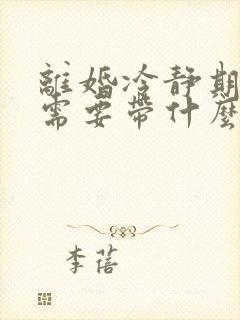 離婚冷靜期
需要帶什麼
李蓓